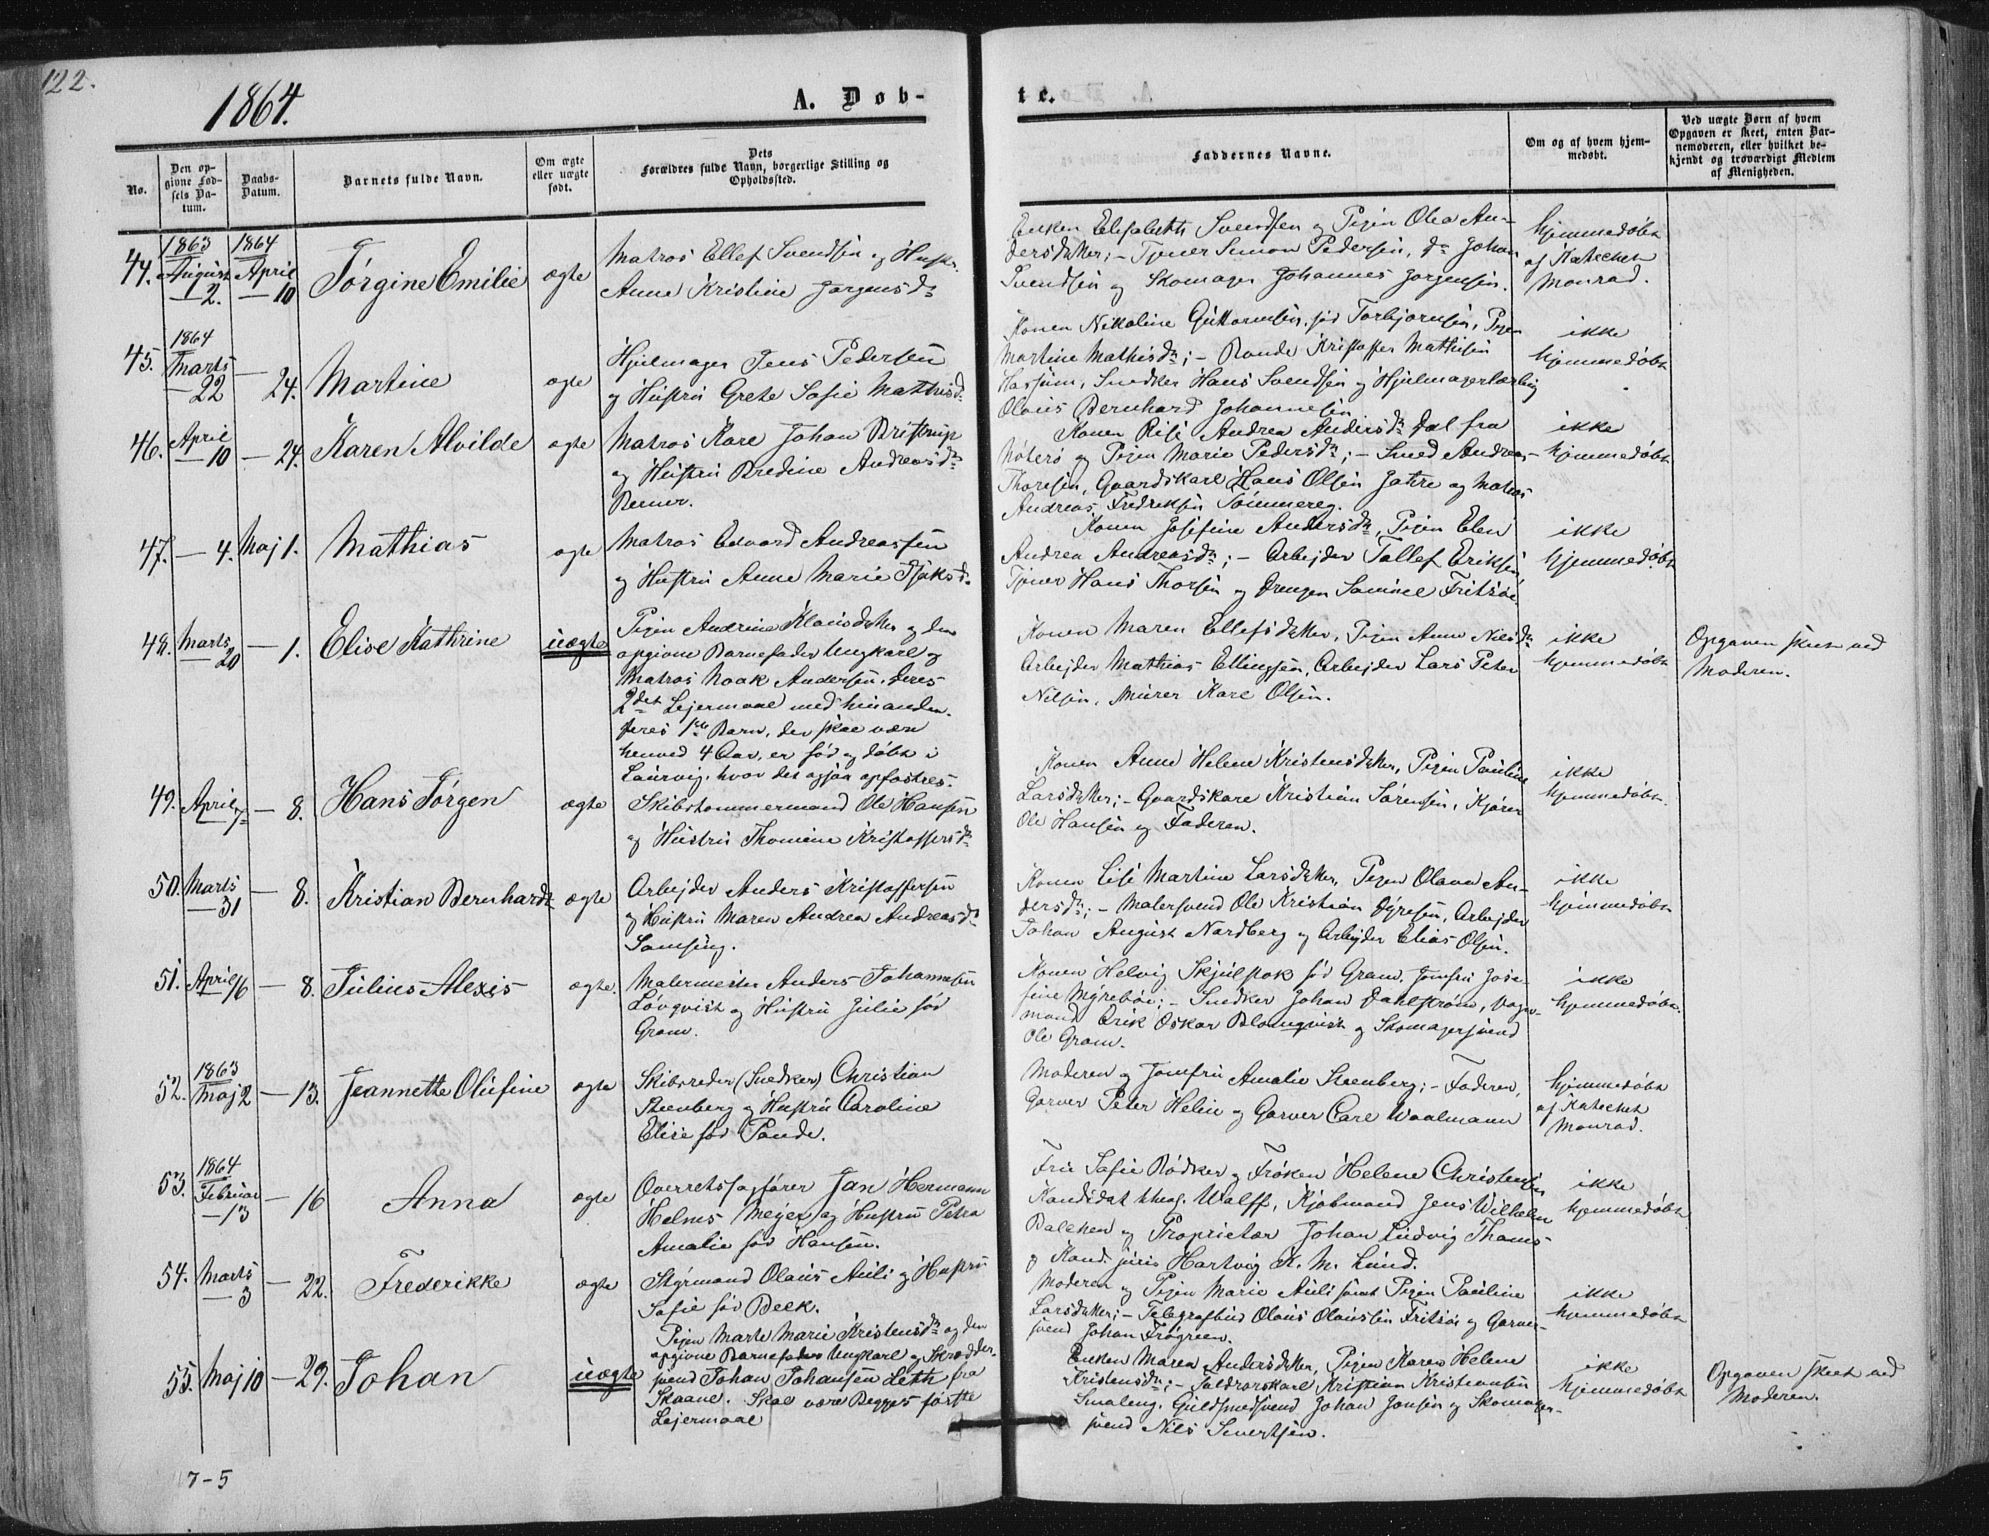 122.
1864.
A. Døb-
te.
No.
Den op-
givne Fød-
sels Da-
tum.
Daabs-
Datum.
Barnets fulde Navn.
Om ægte
eller uægte
født.
Dets
Forældres fulde Navn, borgerlige Stilling og
Opholdssted.
Faddernes Navne.
Om og af hvem hjem-
medøbt.
Ved uægte Børn af hvem
Opgaven er skeet, enten Bar-
nemoderen, eller hvilket be-
kjendt og troværdigt Medlem
af Menigheden.
44. 1863 August 2. 1864 April 10 Jørgine Emilie ægte
Matros Ellef Svendsen og Hustr.
Anne Kristine Jørgensd.
Enken Elisabeth Svendsen og Pigen Olea An-
dersdatter; – Tjener Simon Pedersen, do Johan
Svendsen og Skomager Johannes Jørgensen.
hjemmedøbt
af Katechet
Monrad.
45. 1864 Marts 22 — 24. Martine ægte
Hjulmager Jens Pedersen
og Hustru Grete Sofie Mathisd.
Konen Nikoline Guttormsen, fød Torbjørnsen, Pigen
Martine Mathisdr; – Bonde Kristoffer Mathisen
Hassum, Snedker Hans Svendsen og Hjulmagerlærling
Olaus Bernhard Johannesen
ikke
hjemmedøbt
46. April 10 — 24. Karen Alvilde ægte
Matros Karl Johan Bristrup
og Hustru Bredine Andreasdr
Berner.
Konen Risi Andrea Andersdr Dal fra
Nøterø og Pigen Marie Pedersdr; – Smed Andreas
Thoresen, Gaardskarl Hans Olsen Jahre og Matros
Andreas Fredriksen Sommereg.
ikke
hjemmedøbt
47. — 4. Maj 1. Mathias ægte
Matros Edvard Andreassen
og Hustru Anne Marie Isaksd.
Konen Josefine Andersdr, Pigen Elen
Andrea Andreasdr; – Arbejder Tollef Eriksen,
Tjener Hans Thorsen og Drengen Samuel Fritzøe.
ikke
hjemmedøbt
48. Marts 20 — 1. Elise Kathrine uægte
Pigen Andrine Klausdatter og den
opgivne Barnefader Ungkarl og
Matros Noak Andersen. Deres
2det Lejermaal med hinanden.
Deres 1ste Barn, der skal være
henved 4 Aar, er fød og døbt i
Laurvig, hvor det ogsaa opfostres.
Konen Maren Ellefsdatter, Pigen Anne Nilsdr
Arbejder Mathias Ellingsen, Arbejder Lars Peter
Nilsen, Murer Karl Olsen.
ikke
hjemmedøbt
Opgaven skeet ved
Moderen.
49. April 7 — 8. Hans Jørgen ægte
Skibstømmermand Ole Hansen
og Hustru Thomine Kristoffersdr
Konen Anne Helene Kristensdatter, Pigen Pauline
Larsdatter; – Gaardskarl Kristian Sørensen, Kjører
Ole Hansen og Faderen.
ikke
hjemmedøbt.
50. Marts 31 — 8. Kristian Bernhardt ægte
Arbejder Anders Kristoffersen
og Hustru Maren Andrea Andreasdr
Samsing.
Konen Lise Martine Larsdatter, Pigen Olava An-
dersdr; – Malersvend Ole Kristian Dyresen, Arbejder
Johan August Nordberg og Arbejder Elias Olsen.
ikke
hjemmedøbt
51. April 16 — 8. Julius Alexis ægte.
Malermester Anders Johannesen
Lövqvist og Hustru Julie fød
Gram.
Konen Helvig Skjulstok fød Gram, Jomfru Jose-
fine Myrebøe; – Snedker Johan Dahlstrøm, Vogn-
mand Erik Oskar Blomqvist og Skomagersvend
Ole Gram.
ikke
hjemmedøbt.
52. 1863 Maj 2 — 13. Jeannette Olufine ægte
Skibsreder (Snedker) Christian
Steenberg og Hustru Caroline
Elise fød Pande.
Moderen og Jomfru Amalie Steenberg; – Faderen,
Garver Peter Helin og Garver Carl Waalmann
hjemmedøbt
af Katechet
Monrad.
53. 1864 Februar 13 — 16 Anna ægte
Overretssagfører Jan Hermann
Helms Meyer og Hustru Petra
Amalie fød Hansen.
Fru Sofie Rødker og Frøken Helene Christensen
Kandidat theol. Wulff, Kjøbmand Jens Wilhelm
Balchen og Proprietær Johan Ludvig Thams
og Kand. juris Hartvig K. M. Lund.
ikke
hjemmedøbt
54. Marts 3 — 22. Frederikke ægte
Styrmand Olaus Auli og Hustru
Sofie fød Beck.
Moderen og Pigen Marie Auli samt Pigen Pauline
Larsdatter; – Telegrafbud Olaus Olaussen Fritzøe og Garver-
svend Johan Frøgreen.
ikke
hjemmedøbt
55. Maj 10 — 29. Johan uægte
Pigen Marte Marie Kristensdr og den
opgivne Barnefader Ungkarl og Skrædder-
svend Johan Johansen Leth fra
Skaane. Skal være Begges første
Lejermaal
Enken Maren Andersdatter, Pigen Karen Helene
Kristensdr; – Kristian Kristiansen
Smaleng, Guldsmedsvend Johan Jonsen og Skomager-
svend Nils Sivertsen.
ikke
hjemmedøbt
Opgaven skeet ved
Moderen.
7–5